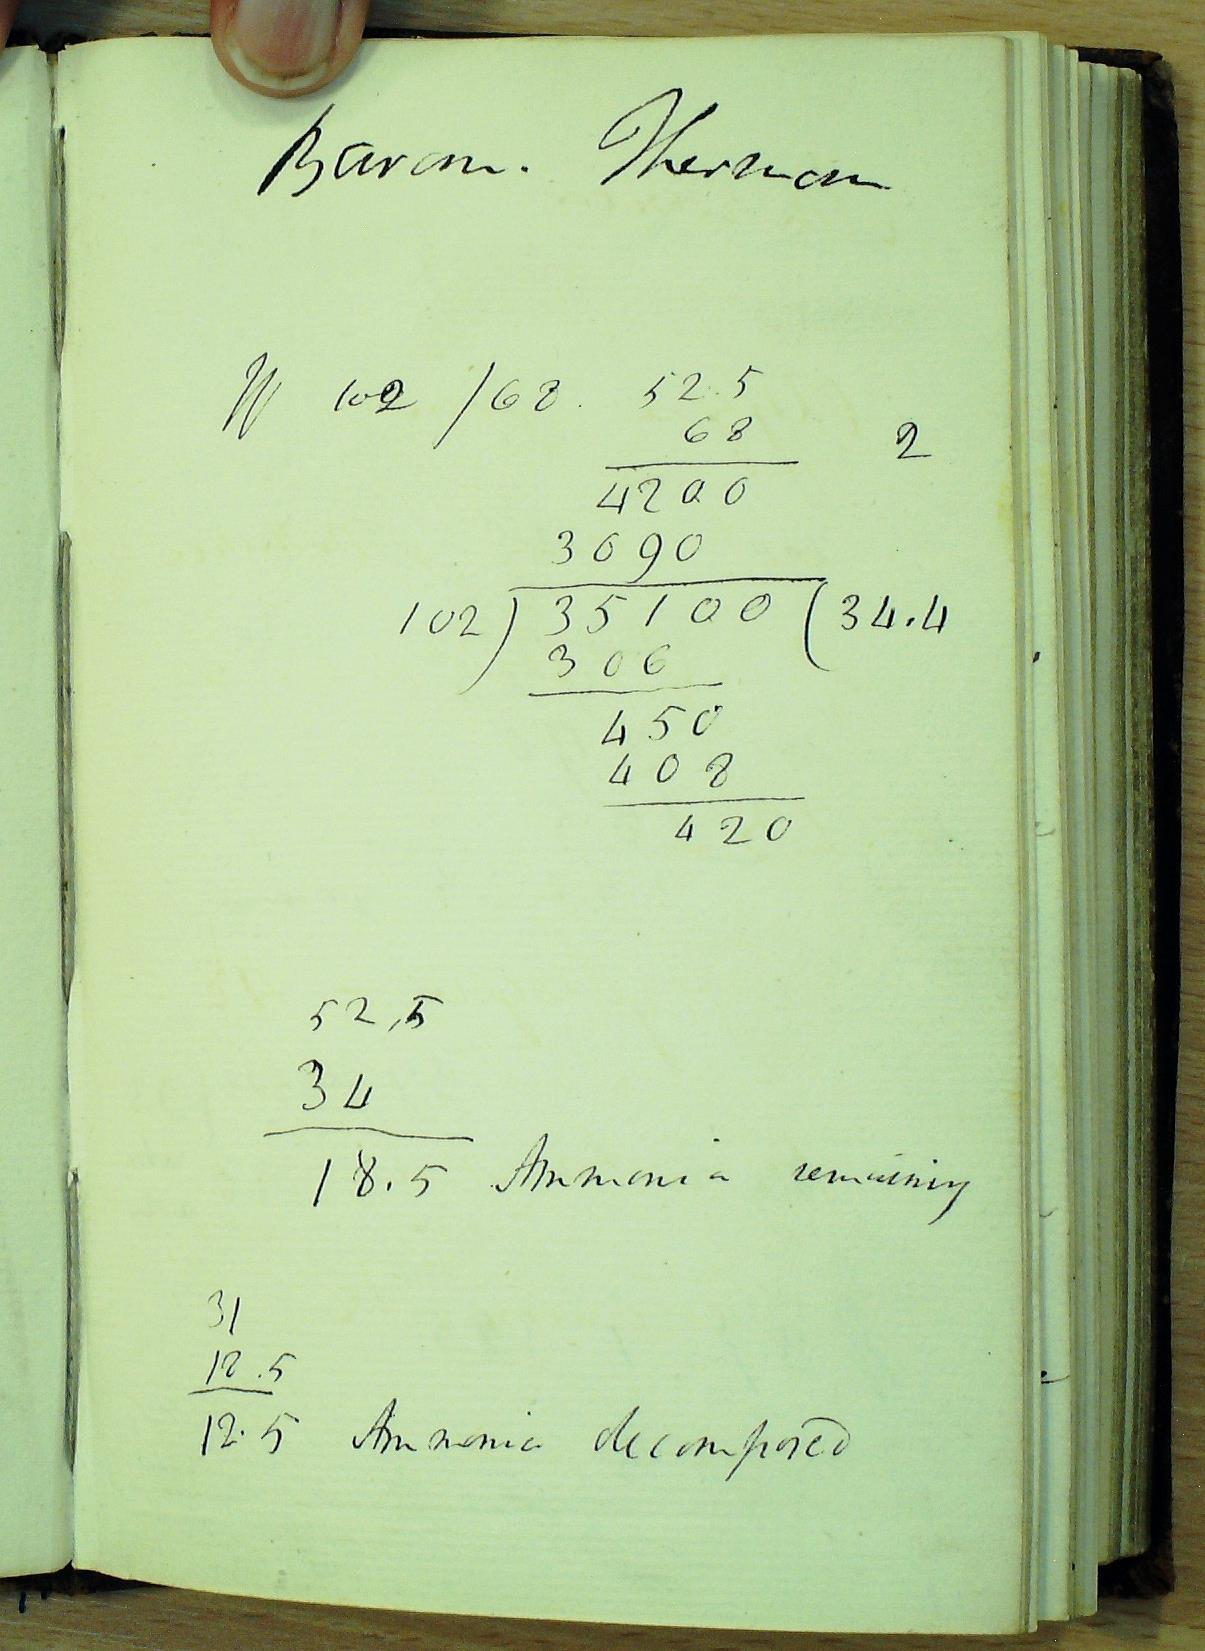 Barom. Thermom
102 / 68. 52.5
68 2
4200
3090
102 ) 35100 ( 34.4
306
450
408
420
52,5
34
18.5 Ammonia remaining
31
18.5
12.5 Ammonia decomposed